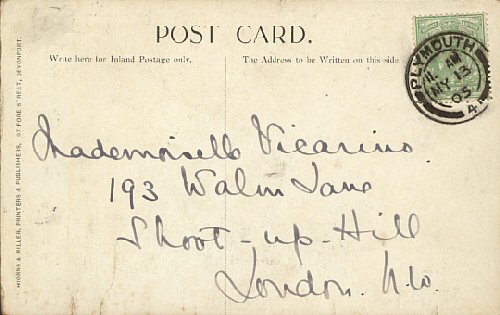 POST CARD.
Write here for Inland Postage only.
The Address to be Written on this side.
PLYMOUTH
MY 13
05
Mademoiselle Vicarino
193 Walm Lane
Shoot-up-Hill
London. N.W.
HIORNS & MILLER, PRINTERS & PUBLISHERS, 97 FORE STREET, DEVONPORT.